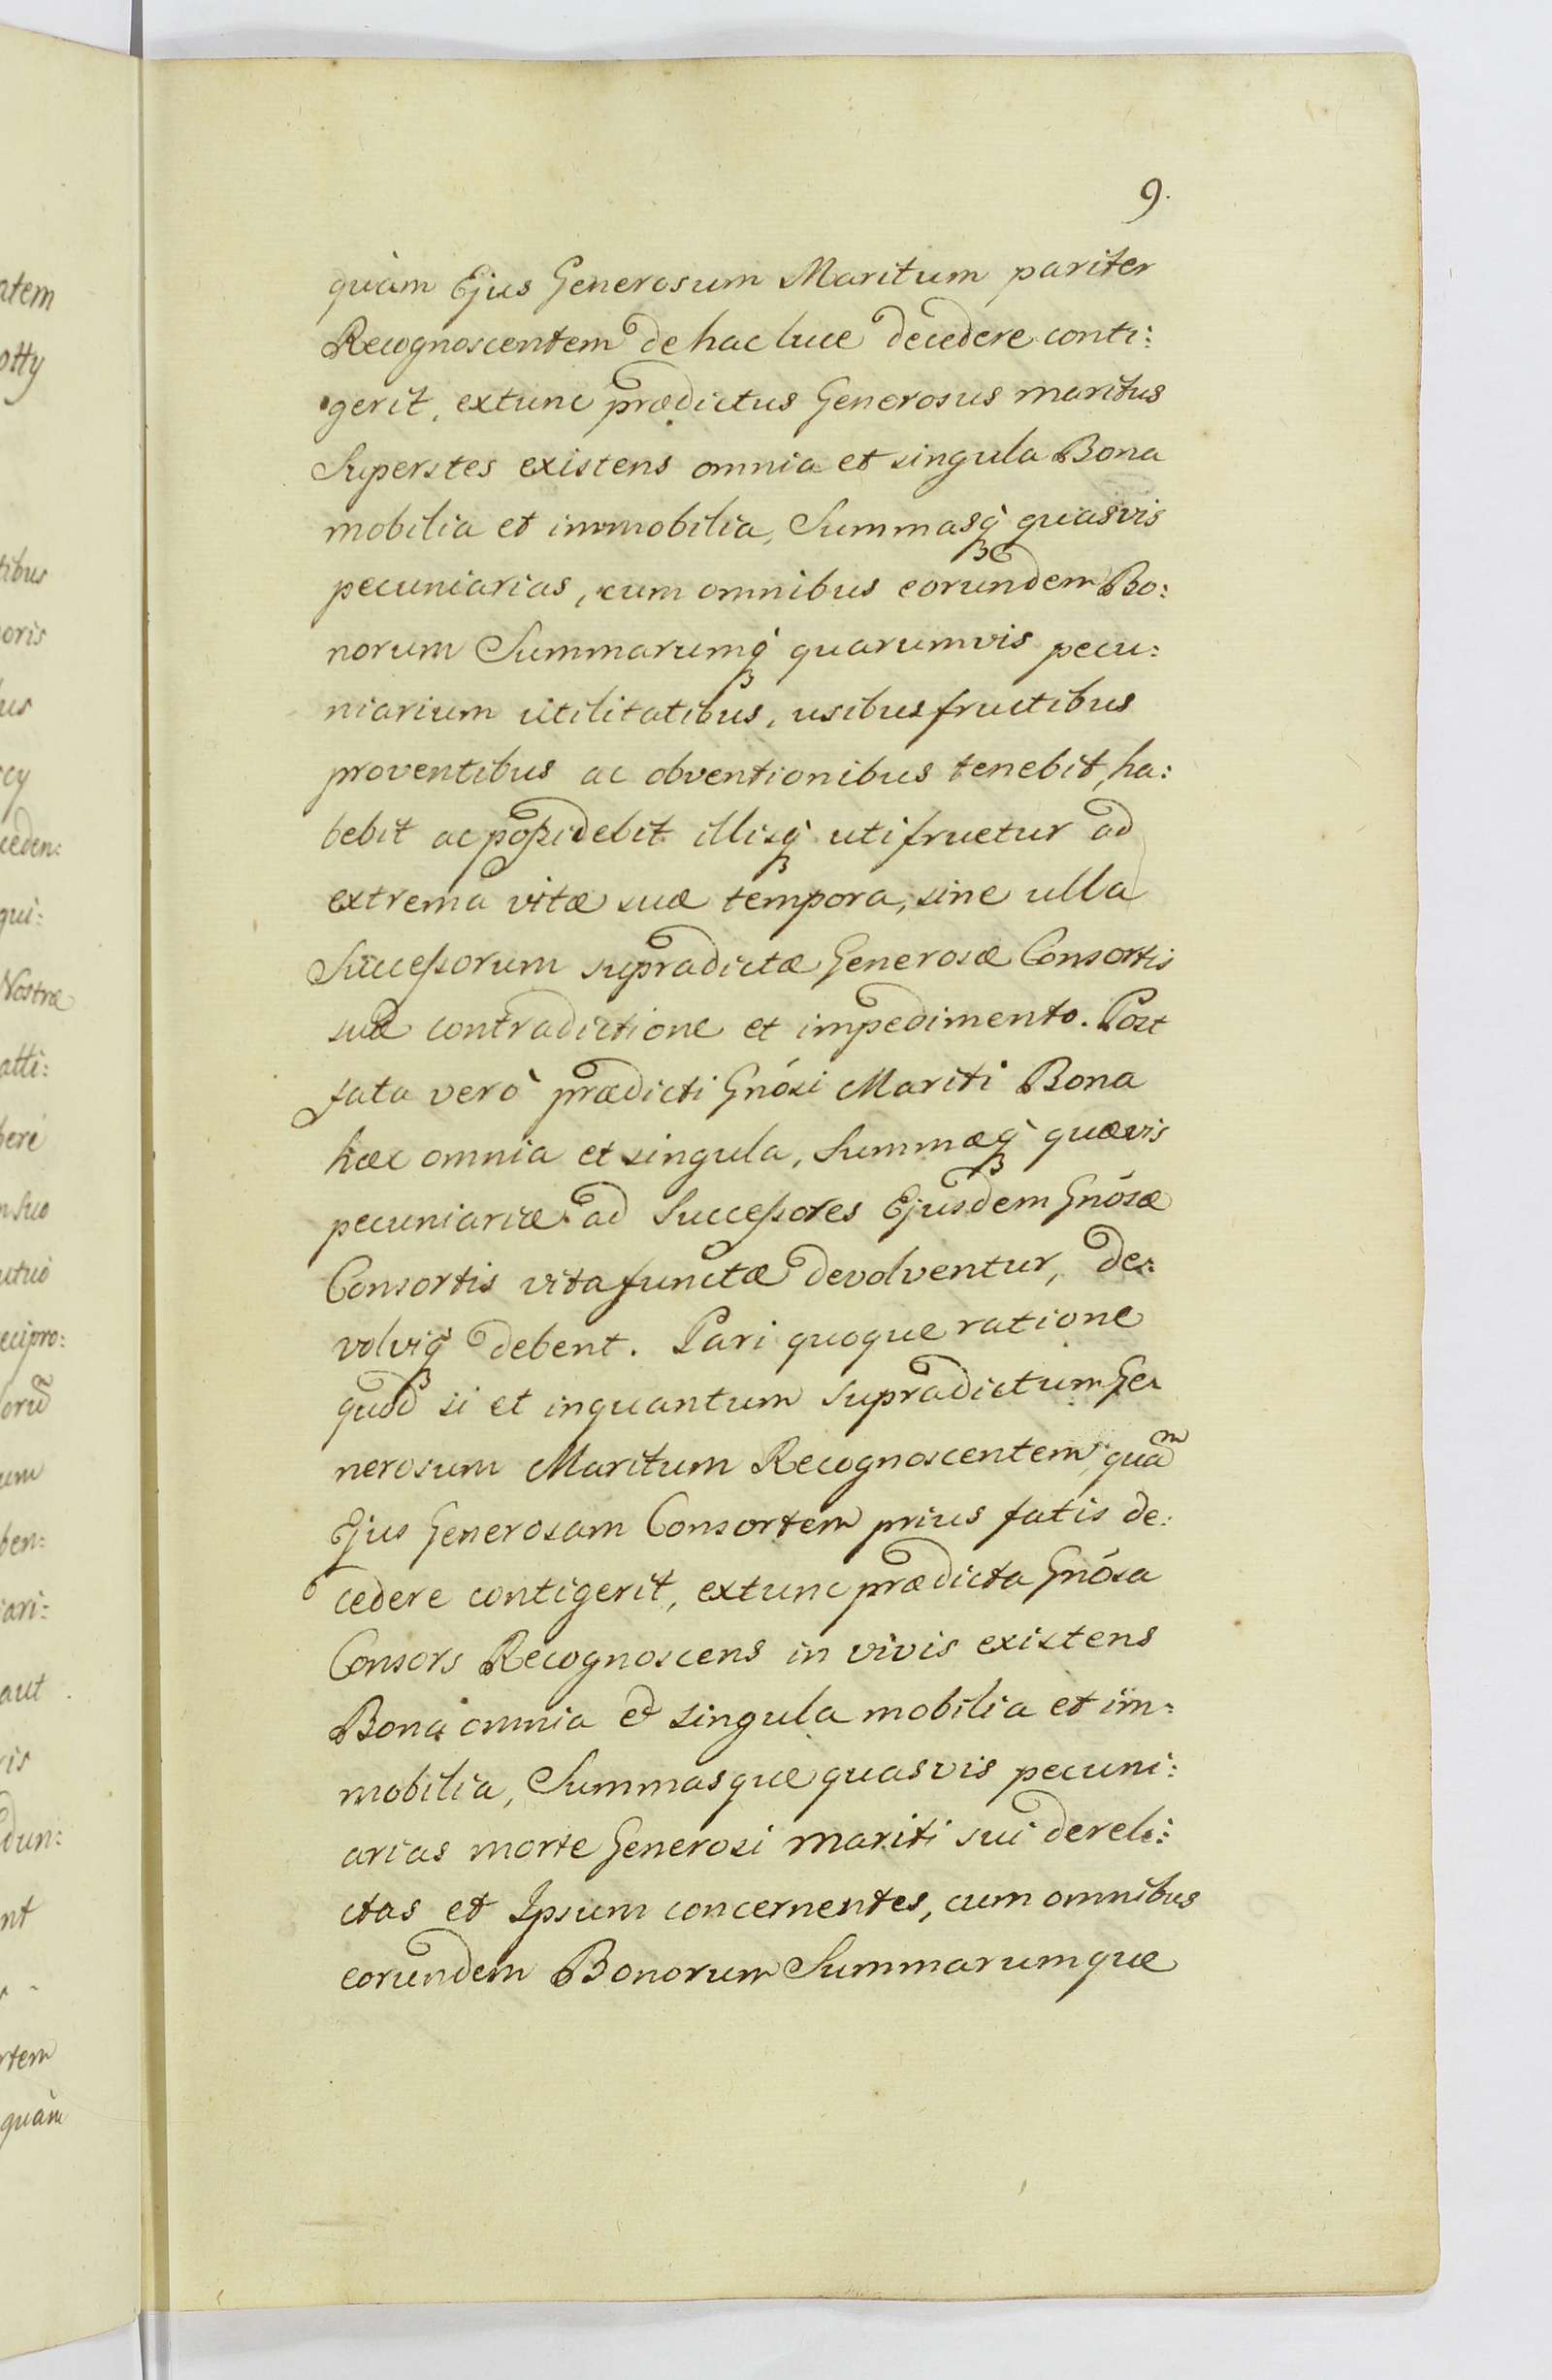 9.
quàm Ejus Generosum Maritum pariter
Recognoscentem de hac luce decedere conti:
gerit, extunc prædictus Generosus maritus
Superstes existens omnia et singula Bona
mobilia et immobilia, Summasq̀ꝫ quasvis
pecuniarias, cum omnibus eorundem Bo:
norum Summarumq̀ꝫ quarumvis pecu:
niarium utilitatibus, usibusfructibus
proventibus ac obventionibus tenebit, ha:
bebit ac poßidebit illisq̀ꝫ utifruetur ad
extrema vitæ suæ tempora, sine ulla
Succeßorum supradictæ Generosæ Consortis
suæ contradictione et impedimento. Post
fata verò prædicti Gnósi Mariti Bona
hæc omnia et singula, Summæq̀ꝫ quævis
pecuniariæ ad Succeßores Ejusdem Gnósæ
Consortis vita functæ devolventur, de:
volviq̀ꝫ debent. Pari quoque ratione
quod si et inquantum supradictum Ge:
nerosum Maritum Recognoscentem, quam
Ejus Generosam Consortem prius fatis de:
cedere contigerit, extunc prædicta Gnósa
Consors Recognoscens in vivis existens
Bona omnia et singula mobilia et im:
mobilia, Summasque quasvis pecuni:
arias morte Generosi mariti sui dereli:
ctas et Ipsum concernentes, cum omnibus
eorundem Bonorum Summarumque
atem
otty
tibus
oris
us
cy
ceden:
qui:
Nostræ
atti:
beri
n suo
utuo
ecipro:
orū
um
ben:
ari:
aut
is
dun:
nt
rtem
quàm